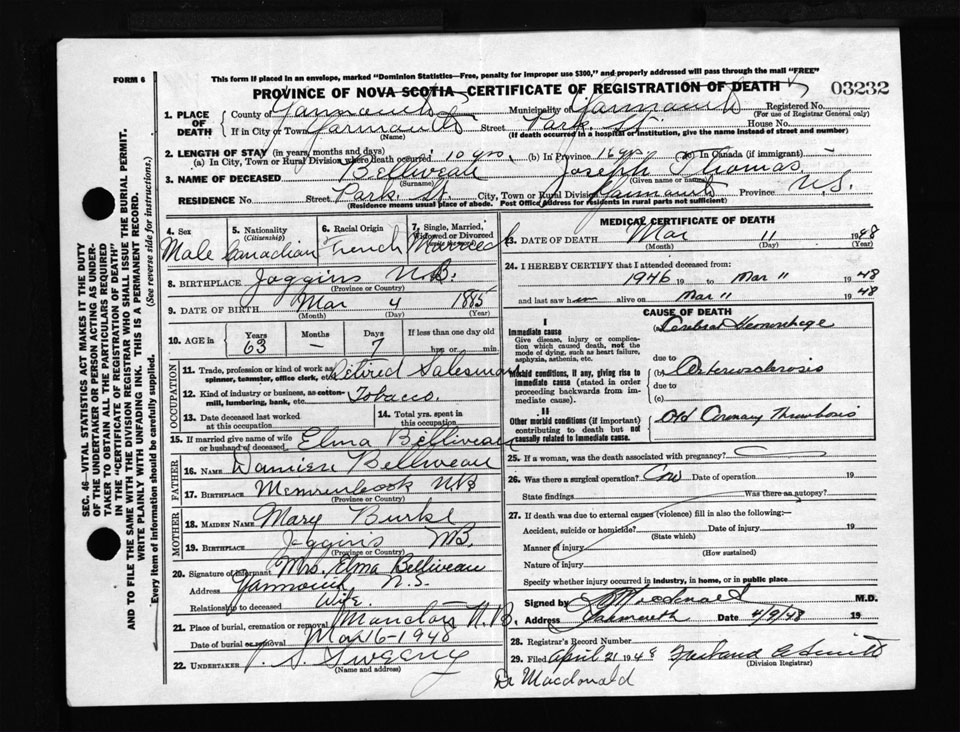 This form if placed in an envelope, marked "Dominion Statistics—Free, penalty for improper use $300," and properly addressed will pass through the mail "FREE"
FORM 6
PROVINCE OF NOVA SCOTIA—CERTIFICATE OF REGISTRATION OF DEATH
03232
1. PLACE OF DEATH
County of Yarmouth Municipality of Yarmouth Registered No.
(For use of Registrar General only)
If in City or Town Yarmouth Street Park St. House No.
(Name) (If death occurred in a hospital or institution, give the name instead of street and number)
2. LENGTH OF STAY (in years, months and days)
(a) In City, Town or Rural Division where death occurred 10 yrs. (b) In Province 16 yrs. (c) In Canada (if immigrant)
3. NAME OF DECEASED Belliveau Joseph Thomas
(Surname) (Given name or names)
RESIDENCE No. Street Park St. City, Town or Rural Division Yarmouth Province N.S.
(Residence means usual place of abode. Post Office Address for residents in rural parts not sufficient)
4. Sex 5. Nationality (Citizenship) 6. Racial Origin 7. Single, Married, Widowed or Divorced
Male Canadian French Married
8. BIRTHPLACE Joggins N.B.
(Province or Country)
9. DATE OF BIRTH Mar 4 1885
(Month) (Day) (Year)
10. AGE in Years Months Days If less than one day old
63 – 7 hrs. or min.
OCCUPATION
11. Trade, profession or kind of work as spinner, teamster, office clerk, etc. Retired Salesman
12. Kind of industry or business, as cotton-mill, lumbering, bank, etc. Tobacco.
13. Date deceased last worked at this occupation
14. Total yrs. spent in this occupation
15. If married give name of wife or husband of deceased Elma Belliveau
FATHER
16. NAME Damien Belliveau
17. BIRTHPLACE Memramcook N.B
(Province or Country)
MOTHER
18. MAIDEN NAME Mary Burke
19. BIRTHPLACE Joggins N.B.
(Province or Country)
20. Signature of informant Mrs. Elma Belliveau
Address Yarmouth N.S.
Relationship to deceased Wife.
21. Place of burial, cremation or removal Moncton N.B.
Date of burial or removal Mar 16-1948
22. UNDERTAKER V. S. Sweeny
(Name and address)
MEDICAL CERTIFICATE OF DEATH
23. DATE OF DEATH Mar 11 1948
(Month) (Day) (Year)
24. I HEREBY CERTIFY that I attended deceased from:
1946 to Mar 11 1948
and last saw him alive on Mar 11 1948
CAUSE OF DEATH
I
Immediate cause (a) Cerebral Hemorrhage
Give disease, injury or complication which caused death, not the mode of dying, such as heart failure, asphyxia, asthenia, etc.
due to
Morbid conditions, if any, giving rise to immediate cause (stated in order proceeding backwards from immediate cause).
(b) Arteriosclerosis
due to
(c)
II
Other morbid conditions (if important) contributing to death but not causally related to immediate cause.
Old Coronary Thrombosis
25. If a woman, was the death associated with pregnancy?
26. Was there a surgical operation? No Date of operation 19
State findings Was there an autopsy?
27. If death was due to external causes (violence) fill in also the following:—
Accident, suicide or homicide? Date of injury 19
(State which)
Manner of injury
(How sustained)
Nature of injury
Specify whether injury occurred in industry, in home, or in public place
Signed by Macdonald M.D.
Address Yarmouth Date 4/9/48 19
28. Registrar's Record Number
29. Filed April 21 1948
(Division Registrar)
Dr Macdonald
SEC. 46—VITAL STATISTICS ACT MAKES IT THE DUTY
OF THE UNDERTAKER OR PERSON ACTING AS UNDER-
TAKER TO OBTAIN ALL THE PARTICULARS REQUIRED
IN THE "CERTIFICATE OF REGISTRATION OF DEATH"
AND TO FILE THE SAME WITH THE DIVISION REGISTRAR WHO SHALL ISSUE THE BURIAL PERMIT.
WRITE PLAINLY WITH UNFADING INK. THIS IS A PERMANENT RECORD.
Every item of information should be carefully supplied. (See reverse side for instructions.)